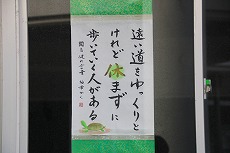 遠い道をゆっくりと
けれど休まずに
歩いていく人がある